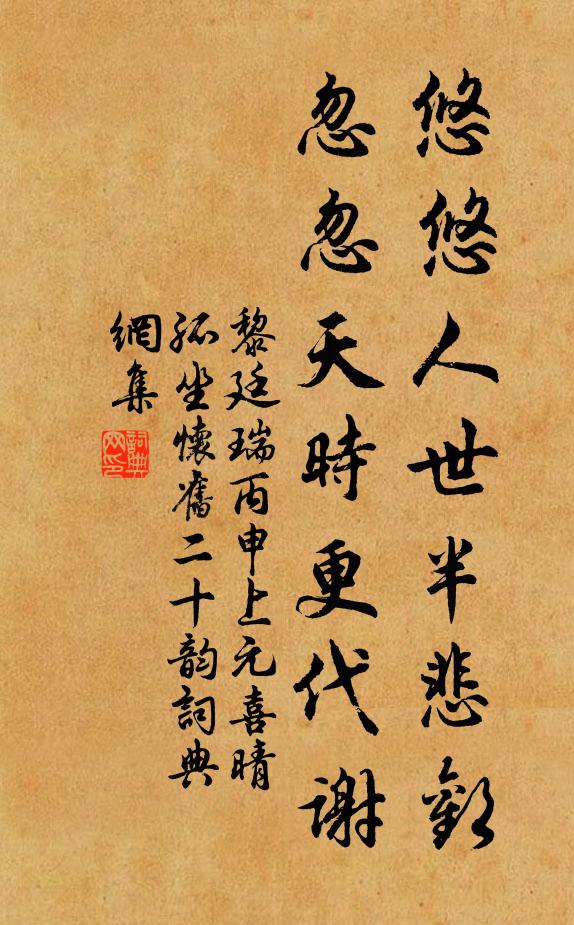 悠悠人世半悲歡
忽忽天時更代謝
黎廷瑞丙申上元喜晴
孤坐懷舊二十韵詞典
網集
詞典
网印